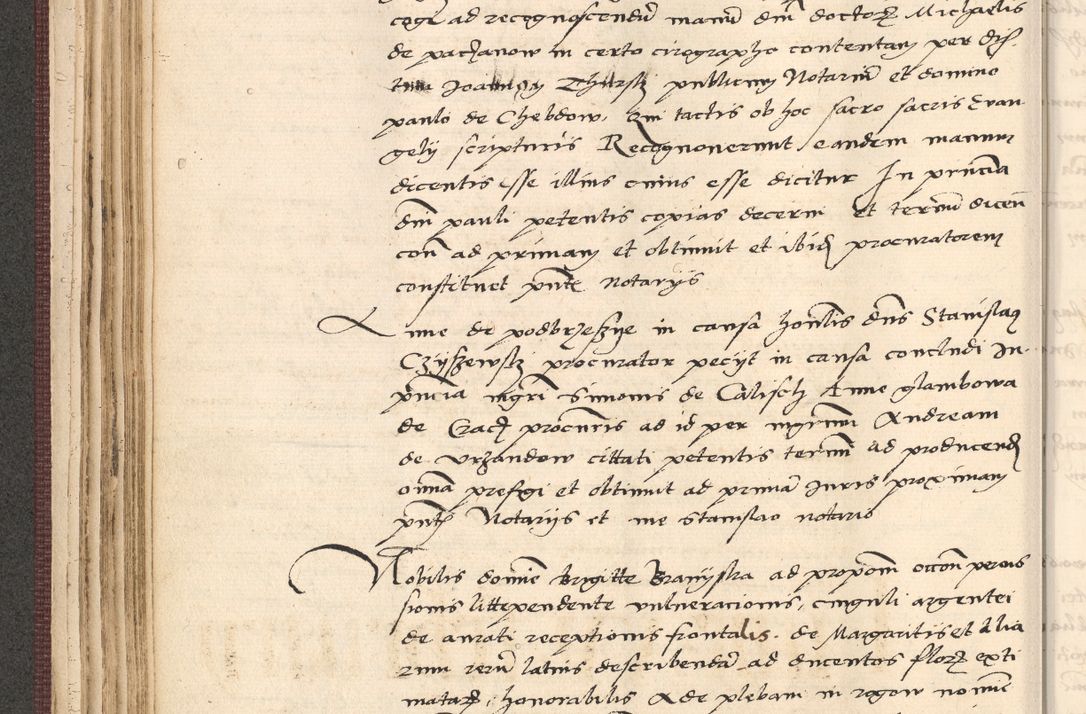 cogi ad recognoscendū manū dnī doctorʒ Michaelis
de paczanow in certo cirographo contentam per dis
Joannem Thursky publicum Notariū et domino
paulo de Chebdow. Qui tactis ob hoc sacro sacris Evan
gelÿ scripturis Recognoverunt eandem manum
dicentis esse illius cuius esse dicitur In pn̄cia
dnī pauli petentis copias decerni et termū dicen̄
con̄ ad primam et obtinuit et ibid procuratorem
constituet pn̄te notarÿs
Anne de podbrzeszÿe in causa hon̄lis dn̄s Stanislaꝯ
Czÿszewskÿ procurator pecÿt in causa concludi In
pn̄cia mgrī Simonis de Calisch Anne glambowa
de Crac procuris ad id per mgrum Andream
de vrzandow cittati petentis termī ad producend
om̄a prefigi et obtinuit ad primā Juris proximam
pn̄te Notarÿs et me stanislao notario
Nobilis domīe Brigitte Branÿska ad propom̄ occon̄ perous
sionis littependente vulneracionis, cinguli argentei
de aurati receptionis frontalis. de Margaritis et Alia
rum rerū latius describendā ad ducentos florʒ exti
matarʒ, honorabilis Ade plebani in rogow nomīe